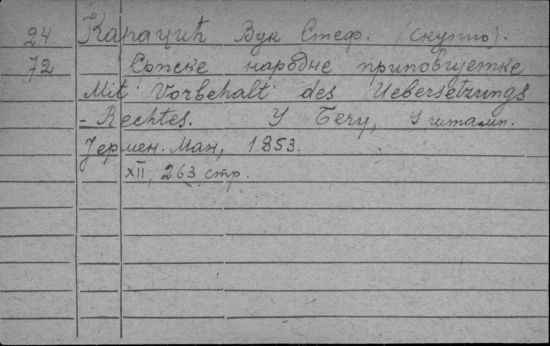 24 Караџић Вук Стеф. (скупио).
72 Српске народне приповијетке
Mit Vorbehalt des Uebersetzungs
-Rechtes. У Бечу, у штамп.
Јермен. Ман, 1853.
XII, 263 стр.